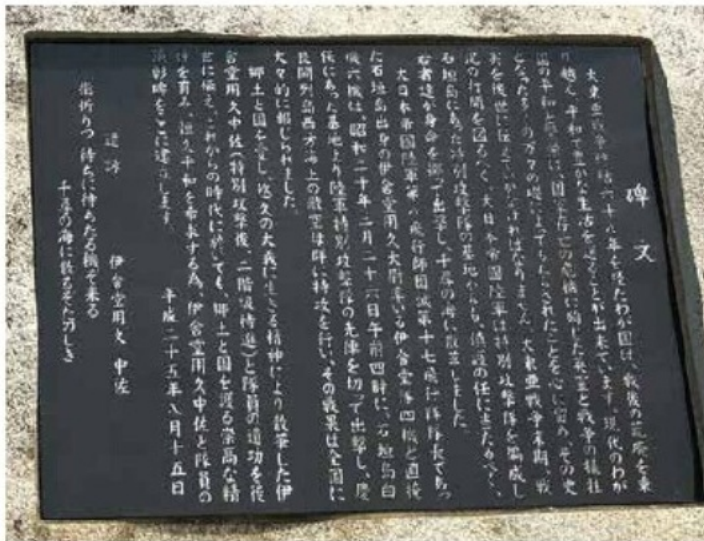 碑文
大東亜戦争終結六十八年を経たわが国は、戦後の荒廃を乗
り越え、平和で豊かな生活を送ることが出来ています。現代のわが
国の平和と繁栄は、国家存亡の危機に殉じた英霊と戦争の犠牲
となった多くの方々の礎によってもたらされたことを心に留め、その史
実を後世に伝えていかなければなりません。大東亜戦争末期、戦
況の打開を図るべく、大日本帝国陸軍は特別攻撃隊を編成し
石垣島にあった特別攻撃隊の基地からも、誘導の任に当たるべく、
若者達が身命を擲って出撃し、千尋の海に散華しました。
大日本帝国陸軍第八飛行師団誠第十七飛行隊隊長であっ
た石垣島出身の伊舍堂用久大尉率いる伊舍堂隊四機と直掩
機六機は、昭和二十年三月二十六日午前四時に、石垣島白
保にあった基地より陸軍特別攻撃隊の先陣を切って出撃し、慶
良間列島西方海上の敵空母群に特攻を行い、その戦果は全国に
大々的に報じられました。
郷土と国を愛し、悠久の大義に生きる精神により散華した伊
舍堂用久中佐(特別攻撃後、二階級特進)と隊員の遺功を後
世に伝え、これからの時代に於いても、郷土と国を護る崇高な精
神を育み、恒久平和を希求する為、伊舍堂用久中佐と隊員の
顕彰碑をここに建立します。
平成二十五年八月十五日
遺詠
伊舍堂用久 中佐
指折りつ 待ちに待ちたる機ぞ来る
千尋の海に散るぞたのしき